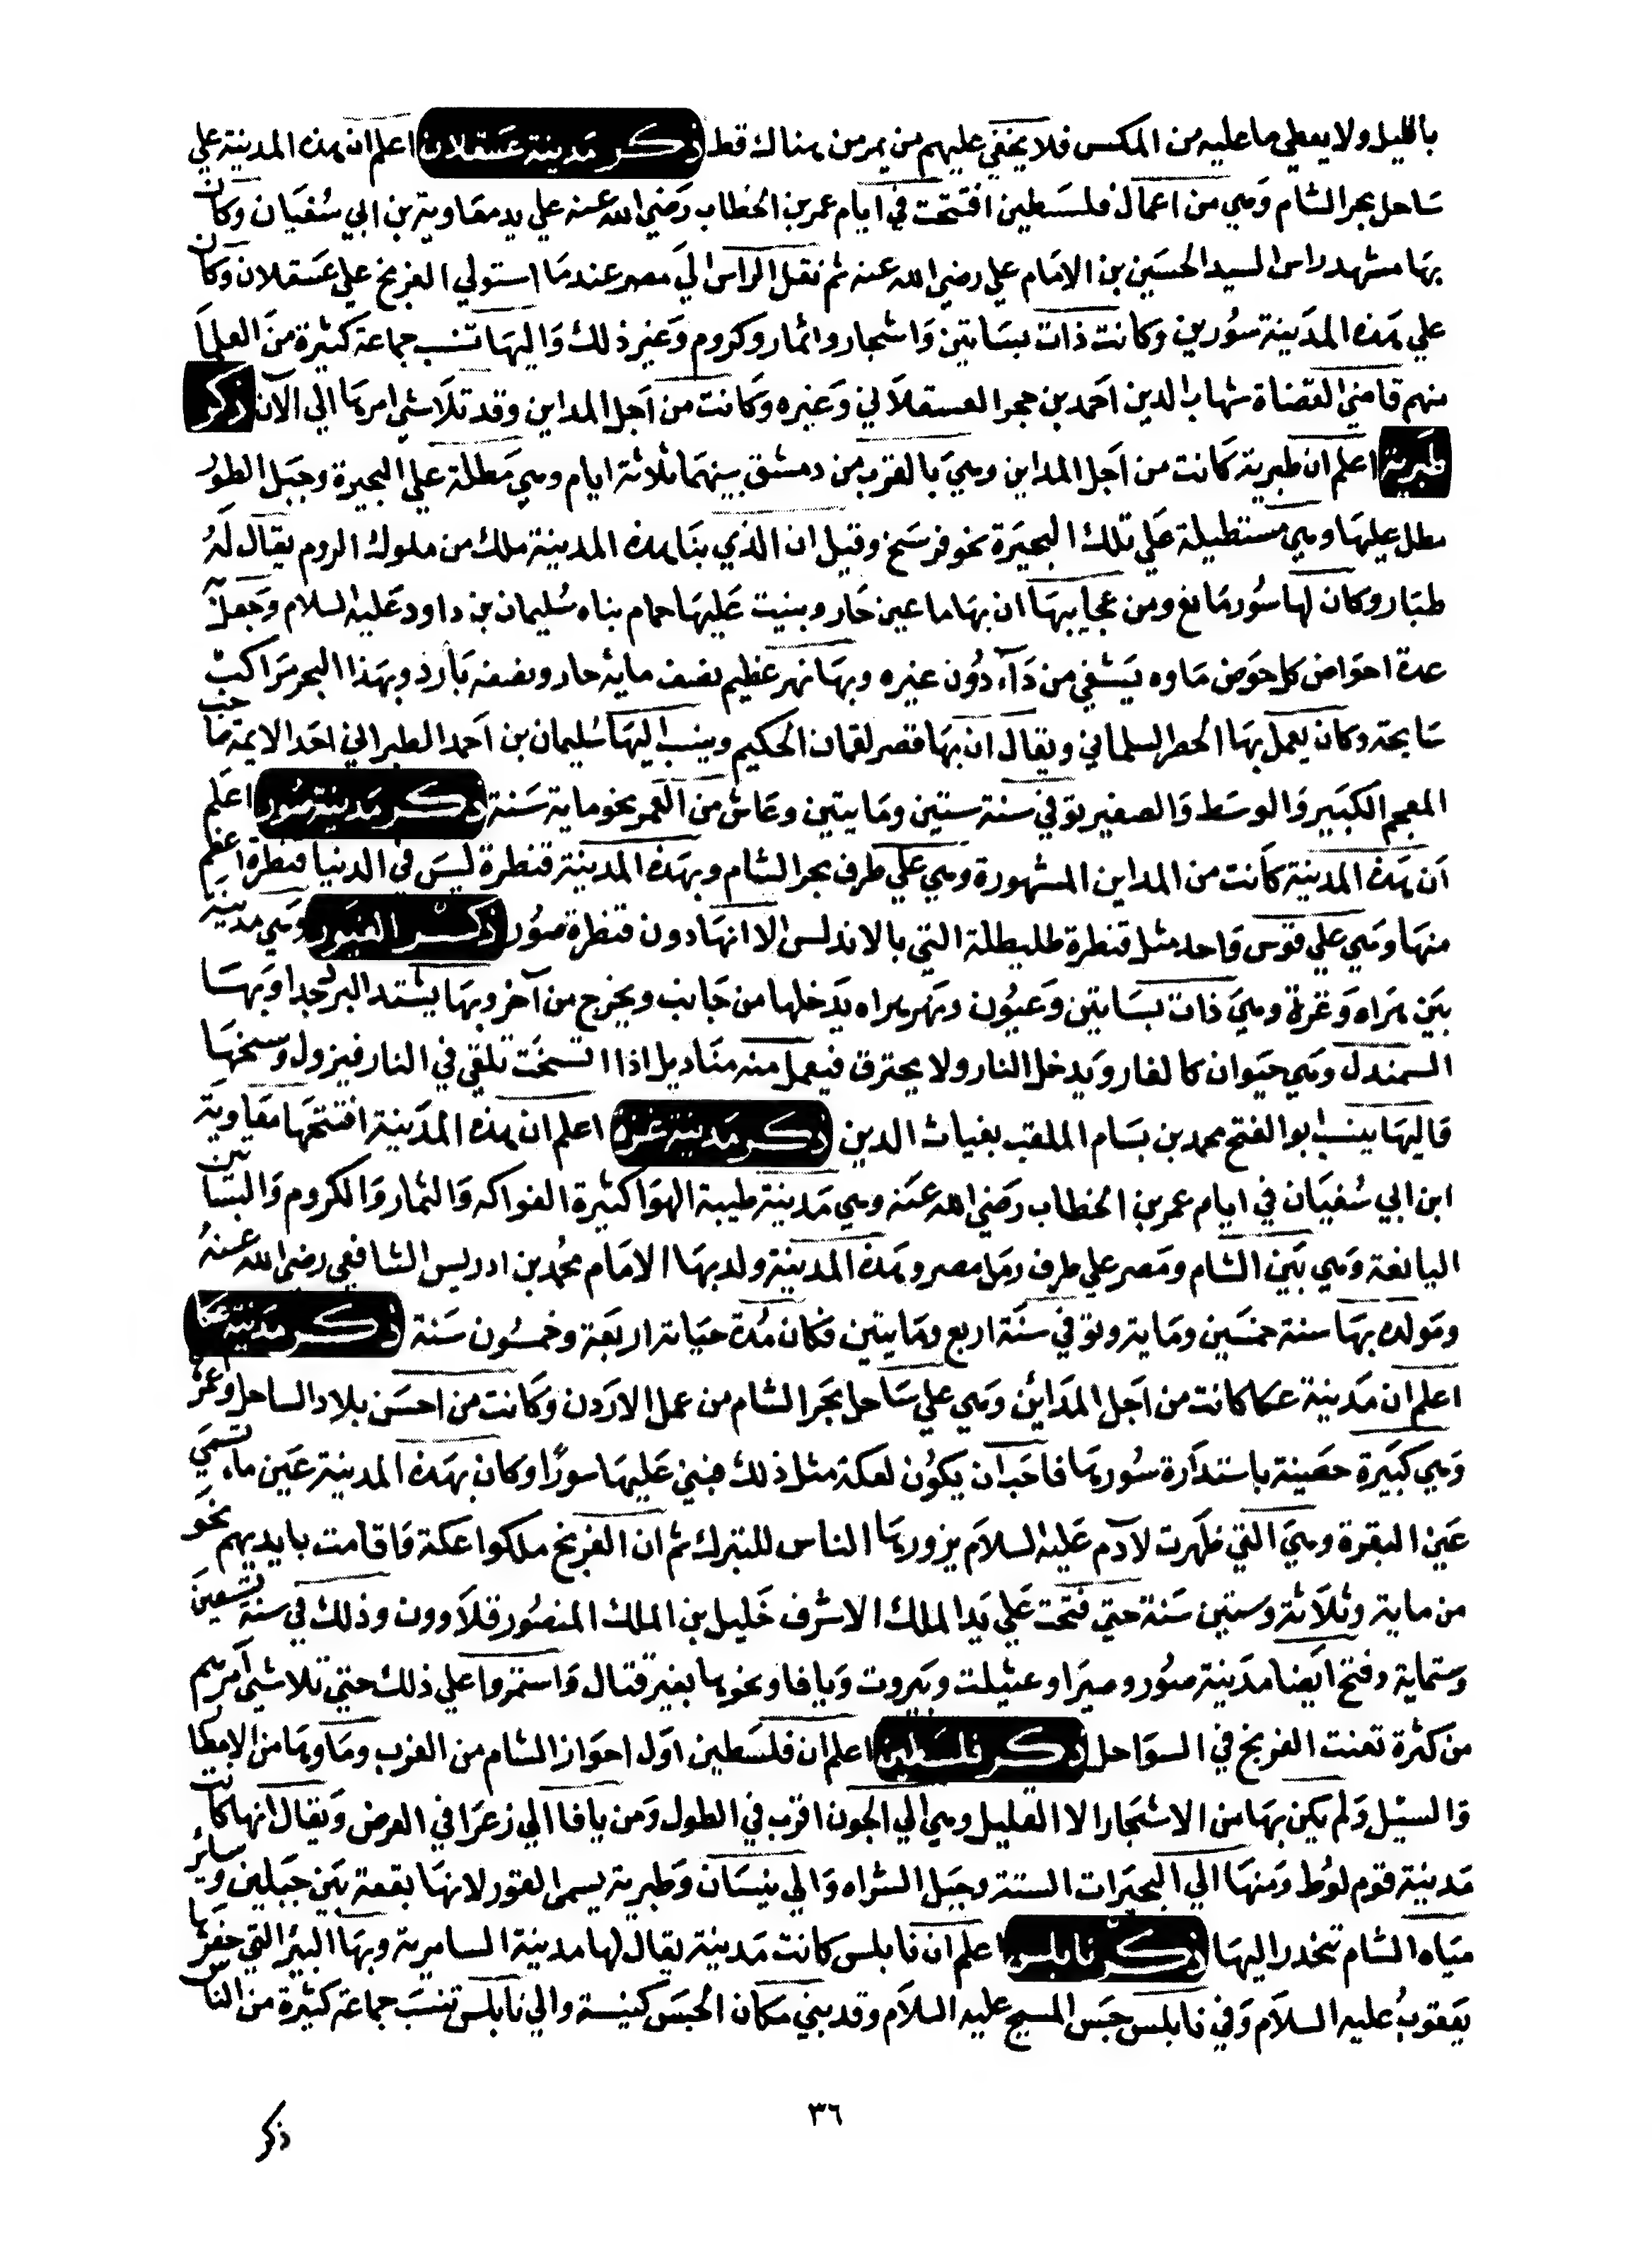 بالليل ولا يعطي ما عليه من المكس فلا يخفي عليهم من يمر من هناك قط ذكر مدينة عسقلان اعلم ان هذه المدينة علي
ساحل بحر الشام وهي من اعمال فلسطين افتتحت في ايام عمر بن الخطاب رضي الله عنه علي يد معاوية بن ابي سفيان وكان
بها مشهد راس السيد الحسين بن الامام علي رضي الله عنه ثم نقل الراس الي مصر عندما استولي الفرنج علي عسقلان وكان
علي هذه المدينة سورين وكانت ذات بساتين واشجار واثمار وكروم وغير ذلك واليها تنسب جماعة كثيرة من العلما
منهم قاضي القضاة شهاب الدين احمد بن حجر العسقلاني وغيره وكانت من اجل المداين وقد تلاشي امرها الي الآن ذكر
طبرية اعلم ان طبرية كانت من اجل المداين وهي بالقرب من دمشق بينهما ثلاثة ايام وهي مطلة علي البحيرة وجبل الطور
مطل عليها وهي مستطيلة علي تلك البحيرة نحو فرسخ وقيل ان الذي بنا هذه المدينة ملك من ملوك الروم يقال له
طبار وكان لها سور مانع ومن عجايبها ان بها ما عين حار وبنيت عليها حمام بناه سليمان بن داود عليه السلام وجعل له
عدة احواض كل حوض ماوه يشفي من دآء دون غيره وبها نهر عظيم نصف مايه حار ونصفه بارد وبهذا البحر مراكب
سايحة وكان يعمل بها الحصر السلماني ويقال ان بها قصر لقمان الحكيم وينسب اليها سليمان بن احمد الطبراني احد الايمة صاحب
المعجم الكبير والوسط والصغير توفي سنة ستين ومايتين وعاش من العمر نحو ماية سنة ذكر مدينة صور اعلم
ان هذه المدينة كانت من المداين المشهورة وهي علي طرف بحر الشام وبهذه المدينة قنطرة ليس في الدنيا قنطرة اعظم
منها وهي علي قوس واحد مثل قنطرة طليطلة التي بالاندلس الا انها دون قنطرة صور ذكر وهي مدينة
بين هراه وغزة وهي ذات بساتين وعيون ونهر هراه يدخلها من جانب ويخرج من آخر وبها يشتد البرد جدا وبها
السمندل وهي حيوان كالفار ويدخل النار ولا يحترق فيعمل منه مناديل اذا اتسخت تلقي في النار فيزول وسخها
واليها ينسب ابو الفتح محمد بن بسام الملقب بغياث الدين ذكر مدينة غزة اعلم ان هذه المدينة افتتحها معاوية
ابن ابي سفيان في ايام عمر بن الخطاب رضي الله عنه وهي مدينة طيبة الهوا كثيرة الفواكه والثمار والكروم والبساتين
اليانعة وهي بين الشام ومصر علي طرف رمل مصر وبهذه المدينة ولد بها الامام محمد بن ادريس الشافعي رضي الله عنه
ومولده بها سنة خمسين وماية وتوفي سنة اربع ومايتين فكان مدة حياته اربعة وخمسون سنة ذكر مدينة عكا
اعلم ان مدينة عكا كانت من اجل المداين وهي علي ساحل بحر الشام من عمل الاردن وكانت من احسن بلاد الساحل
وهي كبيرة حصينة باستدارة سورها فاحب ان يكون لعكة مثل ذلك فبني عليها سورا وكان بهذه المدينة عين ماء تسمي
عين البقرة وهي التي ظهرت لآدم عليه السلام يزورها الناس للتبرك ثم ان الفرنج ملكوا عكة واقامت بايديهم نحو
من ماية وثلاثة وستين سنة حتي فتحت علي يد الملك الاشرف خليل بن الملك المنصور قلاوون وذلك في سنة تسعين
وستماية وفتح ايضا مدينة صور وصيدا وعثيلت وبيروت ويافا ونحوها بغير قتال واستمروا علي ذلك حتي تلاشي امرهم
من كثرة تعنت الفرنج في السواحل ذكر فلسطين اعلم ان فلسطين اول احواز الشام من الغرب وماوها من الامطار
والسيل ولم يكن بها من الاشجار الا القليل وهي الي الجون اقرب في الطول ومن يافا الي زعرا في العرض ويقال انها كانت
مدينة قوم لوط ومنها الي البحيرات الستة وجبل الشراه والي بيسان وطبرية يسمي الغور لانها بقعة بين جبلين وساير
مياه الشام تنحدر اليها ذكر نابلس اعلم ان نابلس كانت مدينة يقال لها مدينة السامرية وبها البئر التي حفرها
يعقوب عليه السلام وفي نابلس حبس المسيح عليه السلام وقد بني مكان الحبس كنيسة والي نابلس تنسب جماعة كثيرة من الناس
٣٦
ذكر